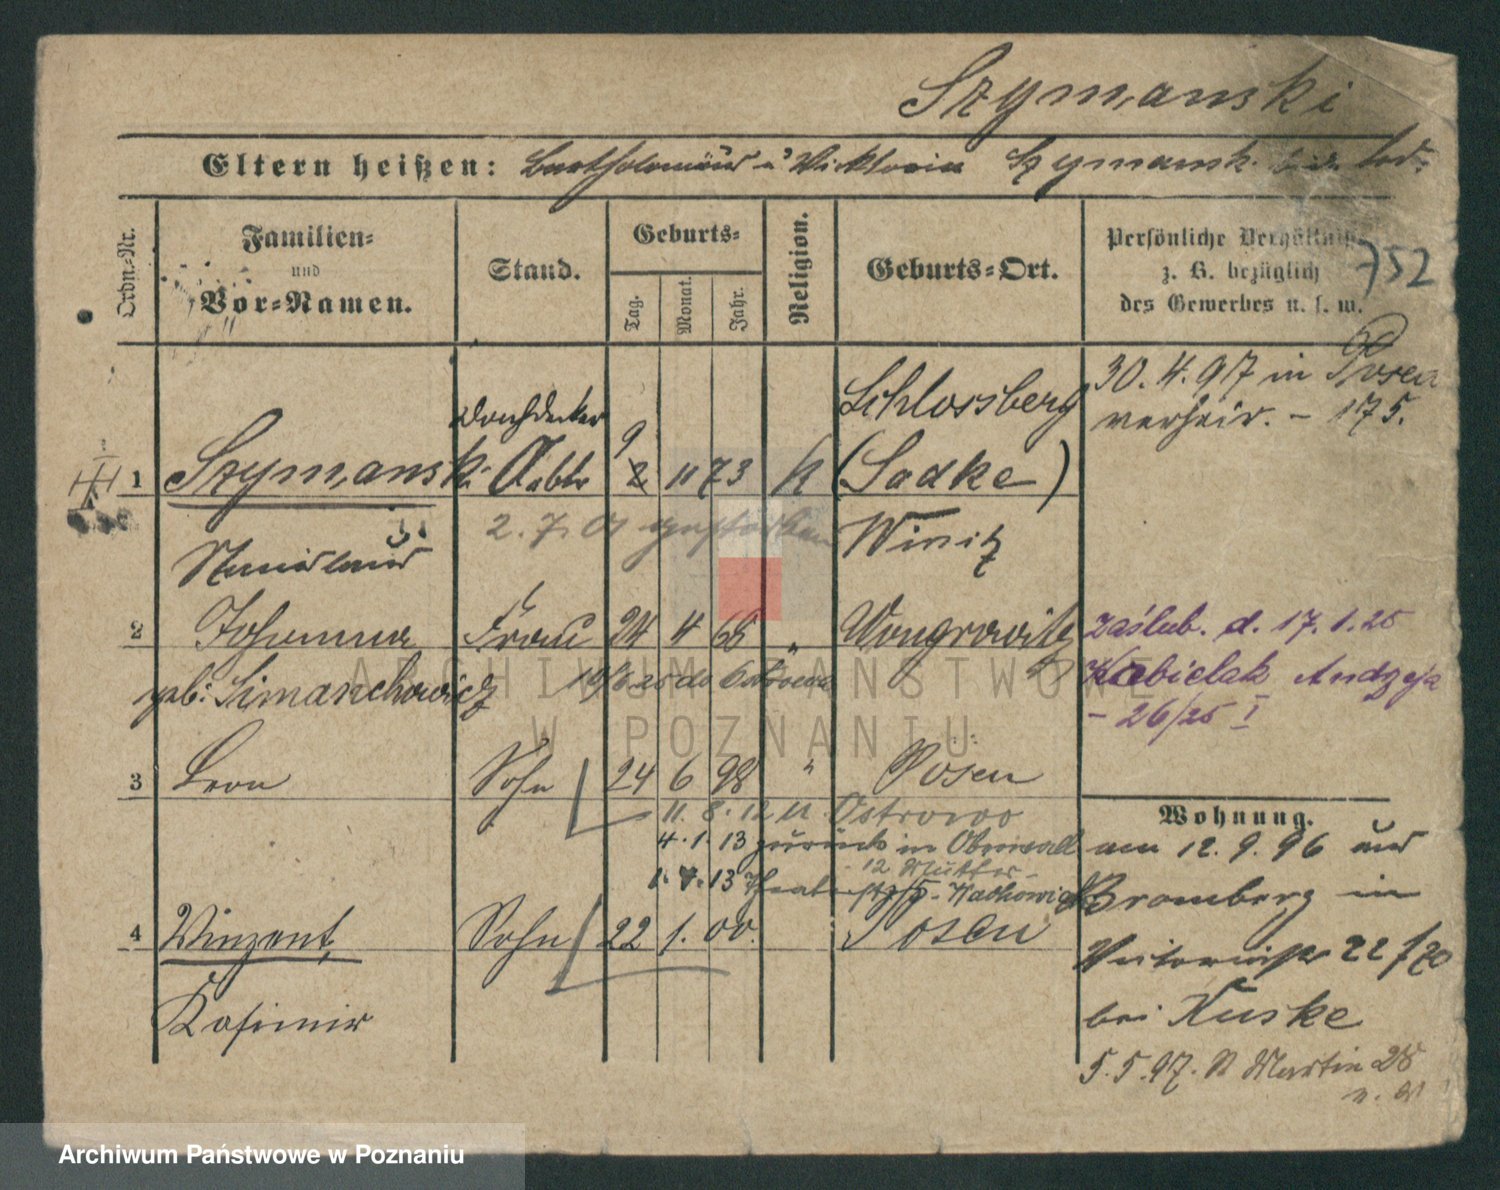 Szymanski
Eltern heißen: Bartholomäus u. Wiktoria Szymansk. beide tod.
Ordn.-Nr.
Familien-
und
Vor-Namen.
Stand.
Geburts-
Tag.
Monat.
Jahr.
Religion.
Geburts-Ort.
Persönliche Verhältniss
z. B. bezüglich
des Gewerbes u. s. w.
752
1
Szymanski
Dachdecker
Arbtr
9
2
11
73
k
Schlossberg
(Sadke)
30. 4. 97 in Posen
verheir. - 175.
Stanislaus
2. 7. 01 gestorben
Wirsitz
2
Johanna
Frau
24
4
65
"
Wongrowitz
zaślub. d. 17.1.25
geb: Simanchowicz
Kabielak Andrzeja
- 26/25 I
3
Leon
Sohn
24
6
98
"
Posen
11. 8. 12 n Ostrowo
4. 1. 13 zurück in Obrwall
12 Mutter
1. 7. 13
4
Winzent,
Sohn
22
1.
00.
Posen
Kasimir
Wohnung.
am 12. 9. 96 aus
Bromberg in
Victoriastr 22
bei Kuske
5. 5. 97. St Martin 28
ARCHIWUM PAŃSTWOWE
W POZNANIU
Archiwum Państwowe w Poznaniu